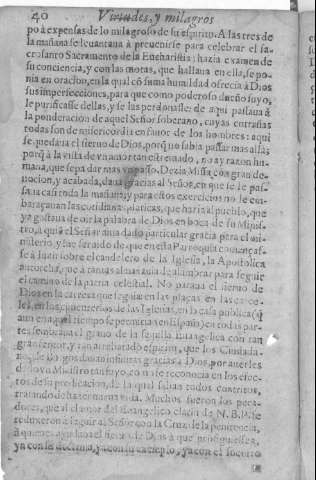 40 Virtudes, y milagros
po à expensas de lo milagroso de su espiritu. A las tres de
la mañana se leuantaua à preuenirse para celebrar el sa-
crosanto Sacramento de la Eucharistia: hazia examen de
su conciencia, y con las motas, que hallaua en ella, se po-
nia en oracion, en la qual cõ suma humildad ofrecia à Dios
sus imperfecciones, para que como poderoso dueño suyo,
le purificasse dellas, y se las perdonasse: de aqui passaua à
la ponderacion de aquel Señor soberano, cuyas entrañas
todas son de misericordia en fauor de los hombres: aqui
se quedaua el sieruo de Dios, porq̃ no sabia passar mas allà;
porq̃ à la vista de vn amor tan estremado, no ay razon hu-
mana, que sepa dar mas vn passo. Dezia Missa con gran de-
uocion, y acabada, daua gracias al Señor, en que se le pas-
saua casi toda la mañana, y para estos exercicios no le em-
baraçauan las cotidianas platicas, que hazia al pueblo, que
ya gustaua de oir la palabra de Dios en boca de su Minis-
tro, à quien el Señor auia dado particular gracia para el mi-
nisterio, y fue seruido de que en esta Parroquia començas-
se à luzir sobre el candelero de la Iglesia, la Apostolica
antorcha, que à tantas almas auia de alumbrar para seguir
el camino de la patria celestial. No paraua el sieruo de
Dios en la carrera que seguia en las plaças, en las carce-
les, en los cimenterios de las Iglesias, en la casa publica (q̃
aun en aquel tiempo se permitia en España) en todas par-
tes sembraua el grano de la semilla Euangelica con tan
gran feruor, y tan arrebatado espiritu, que los Ciudada-
nos de Burgos dauan infinitas gracias à Dios, por auerles
dado vn Ministro tan suyo, como se reconocia en los efec-
tos de su predicacion, de la qual salian todos contritos,
tratando de hazer nueua vida. Muchos fueron los peca-
dores, que al clamor del Euangelico clarin de N. B. P. se
reduxeron à seguir al Señor con la Cruz de la penitencia,
à quienes ayudaua el sieruo de Dios à que prosiguiessen,
ya con su doctrina, ya con su exemplo, ya con el socorro